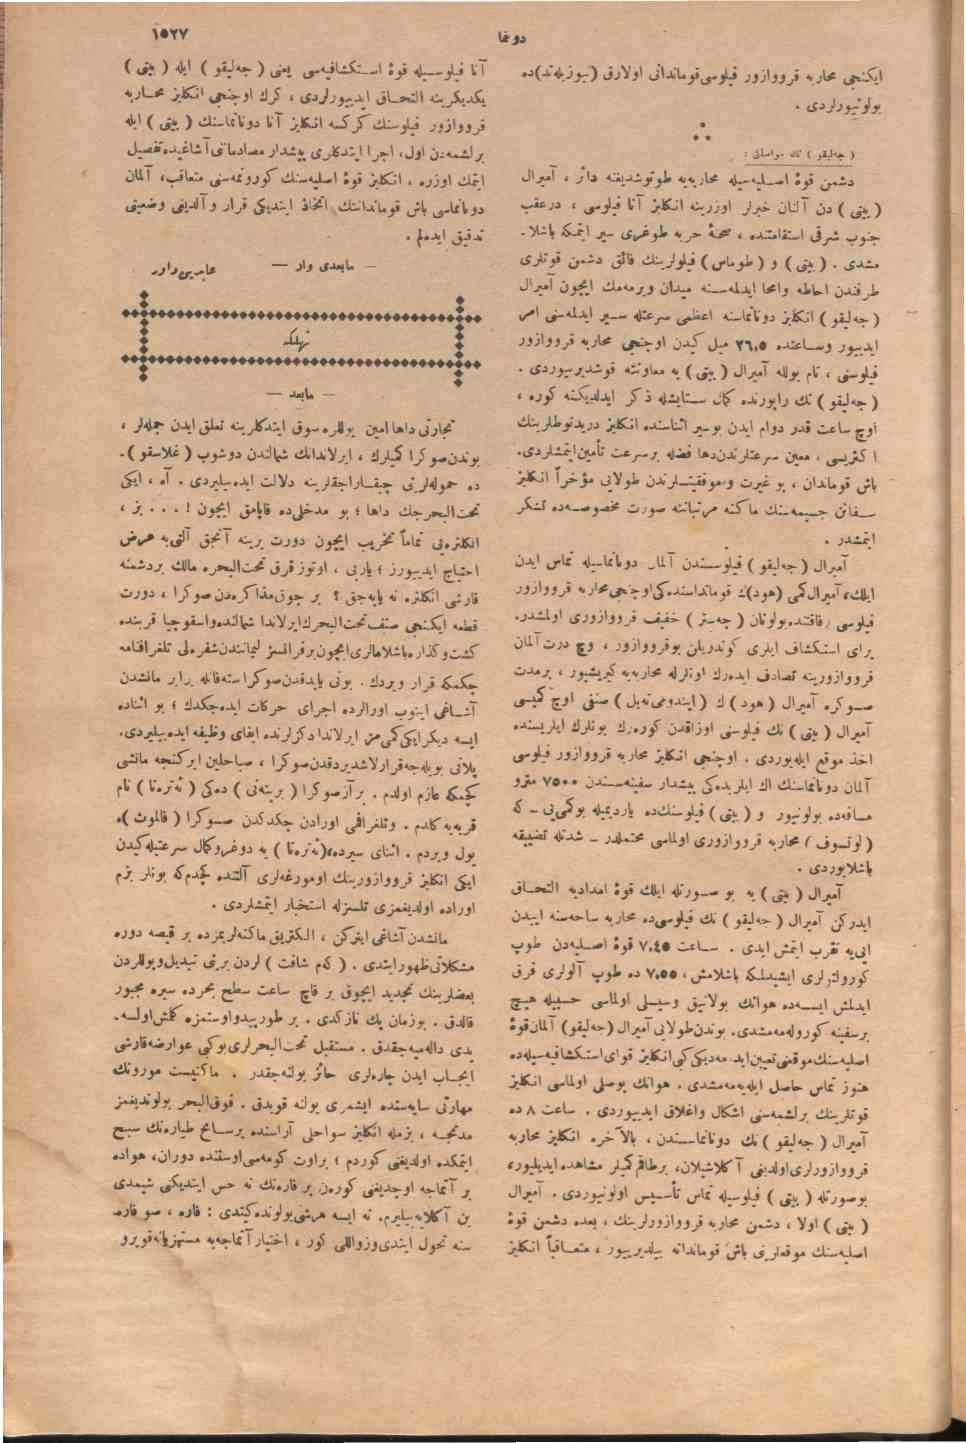 دوغما
١٥٢٧
ایكنجی محاربه قرووازور فیلوسی قوماندانی اولارق (نیوزیله‌ند)ده
بولونیورلردی .
( جه‌لیقو ) نك مواصلتی :
دشمن قوهٔ اصـلیه‌سیله محاربه‌یه طوتوشدیغنه دائر ، آمیرال
( بیتی ) دن آلنان خبرلر اوزرینه انكلیز آنا فیلوسی ، درعقب
جنوب شرقی استقامتنده ، صحنهٔ حربه طوغری سیر ایتمكه باشلا-
مشدی . ( بیتی ) و ( طوماس ) فیلولرینك فائق دشمن قوتلری
طرفندن احاطه وامحا ایدلمه‌سنه میدان ویرمه‌مك ایچون آمیرال
( جه‌لیقو ) انكلیز دونانماسنه اعظمی سرعتله سیر ایدلمه‌سنی امر
ایدییور وساعتده ٢٦,٥ میل كیدن اوچنجی محاربه قرووازور
فیلوسنی ، تام یوللە آمیرال ( بیتی ) یه معاونته قوشدیرییوردی .
( جه‌لیقو ) نك راپورنده كمال ستایشله ذكر ایدلدیكنه كوره ،
اوچ ساعت قدر دوام ایدن بوسیر اثناسنده انكلیز دریدنوطلرینك
اكثریسی ، معین سرعتلرندن‌دها فضله برسرعت تأمین‌ایتمشلردی.
باش قوماندان ، بو غیرت وموفقیتـلرندن طولایی مؤخراً انكلیز
سفائن جسیمه‌سنك ماكنه مرتباتنه صورت مخصوصه‌ده تشكر
ایتمشدر .
آمیرال ( جه‌لیقو ) فیلوسـندن آلمان دونانماسیله تماس ایدن
ایلك، آمیرال‌كمی (هود)ك قومانداسنده‌كی‌اوچنجی‌محاربه قرووازور
فیلوسی رفاقتنده‌بولونان ( چه‌ستر ) خفیف قرووازوری اولمشدر.
برای استكشاف ایلری كوندریلن بوقرووازور ، اوچ درت آلمان
قرووازورینه تصادف ایده‌رك اونلرله محاربه‌یه كیریشیور ، برمدت
صـوكره آمیرال ( هود ) ك ( ایندومی‌ته‌بل ) صنفی اوچ كمیسی
آمیرال ( بیتی ) نك فیلوسنی اوزاقدن كوره‌رك بونلرك ایلریسنده
اخذ موقع ایله‌یوردی . اوچنجی انكلیز محاربه قرووازور فیلوسی
آلمان دونانماسنك اك ایلریده‌كی پیشدار سفینه‌سـندن ٧٥٠٠ مترو
مسافه‌ده بولونیور و ( بیتی ) فیلوسنك‌ده یاردیمیله بوكمی‌یی - كه
( لوتسوف ) محاربه قرووازوری اولماسی محتملدر - شدتله تضییقه
باشلایوردی .
آمیرال ( بیتی ) یه بو صـورتله ایلك قوهٔ امدادیه التحـاق
ایدركن آمیرال ( جه‌لیقو ) نك فیلوسی‌ده محاربه ساحه‌سنه ایبدن
ایی‌یه تقرب ایتمش ایدی . ساعت ٧,٤٥ قوهٔ اصـلیه‌دن طوپ
كورولتولری ایشیدلمكه باشلامش، ٧,٥٥ ده طوپ آلولری فرق
ایدلمش ایسـه‌ده هوانك بولانیق وسیـلی اولماسی حسبیله هیچ
برسفینه كوروله‌مه‌مشدی. بوندن‌طولایی آمیرال (جه‌لیقو) آلمان‌قوهٔ
اصلیه‌سنك موقعنی‌تعیین‌ایده‌مه‌دیكی كبی‌انكلیز قوای استكشافیه‌سیله‌ده
هنوز تماس حاصل ایله‌یه‌مه‌مشدی . هوانك پوصلی اولماسی انكلیز
قوتلرینك برلشمه‌سنی اشكال واغلاق ایدییوردی . ساعت ٨ ده
آمیرال ( جه‌لیقو ) نك دونانماسـندن ، بالآخره انكلیز محاربه
قرووازورلری‌اولدیغی آكلاشیلان، برطاقم‌كمیلر مشاهده‌ایدیلیور،
بوصورتله ( بیتی ) فیلوسیله تماس تأسـیس اولونیوردی . آمیرال
( بیتی ) اولا ، دشمن محاربه قرووازورلرینك ، بعده دشمن قوهٔ
اصلیه‌سنك موقعلرینی باش قوماندانه بیلدیرییور ، متعـاقباً انكلیز
آنا فیلوسـیله قوهٔ اسـتكشافیه‌سی یعنی ( جه‌لیقو ) ایله ( بیتی )
یكدیكرینه التحـاق ایدییورلردی ، كرك اوچنجی انكلیز محـاربه
قرووازور فیلوسنك كركسه انكلیز آنا دونانماسنك ( بیتی ) ایله
برلشمه‌دن اول، اجرا ایتدكلری پیشدار مصادماتنی‌آشاغیده‌تفصیل
ایتمك اوزره ، انكلیز قوهٔ اصلیه‌سنك كورونمه‌سنی متعاقب، آلمان
دونانماسی باش قوماندانك اتخاذ ایتدیكی قرار و آلدیغی وضعیتی
تدقیق ایده‌لم .
— مابعدی وار —
عابدین داور
تهلكه
— مابعد —
تجارتی داها امین یوللره سوق ایتدكلرینه تعلق ایدن جمله‌لر ،
بوندن‌صوكرا كمیلرك ، ایرلاندانك شمالندن دوشوب ( غلاسقو )-
ده حموله‌لرینی چیقـاراجقلرینه دلالت ایده‌بیلیردی . آه ، ایكی
تحت‌البحرجك داها ؛ بو مدخلی‌ده قاپامق ایچون ! ... بز ،
انكلتره‌یی تماماً تخریب ایچون دورت یرینه آنجق آلتی‌یه عرض
احتیاج ایدییورز ؛ یاربی ، اوتوز قرق تحت‌البحره مالك بردشمنه
قارشی انكلتره نه یاپه‌جق ؟ بر چوق مذاكره‌دن صوكرا ، دورت
قطعه ایكنجی صنف‌تحت‌البحرك‌ایرلاندا شمالنده‌واسقوچیا قربنده
كشت وكذاره‌باشلامالری‌ایچون‌برفرانسز لیماننندن‌شفره‌لی تلغرافنامه
چكمكه قرار ویردك . بونی یاپدقدن‌صوكرا سته‌فانله برابر مانشدن
آشـاغی اینوب اورالرده اجرای حركات ایده‌جكدك ؛ بو اثناده
ایسه دیكرایكی‌كمی‌مز ایرلاندا دكزلرنده ایفای وظیفه ایده‌بیلیردی.
پلانی بویله‌جه‌قرارلاشدیردقدن‌صوكرا ، صباحلین ایركنجه مانشی
كچمكه عازم اولدم . برآزصوكرا ( بریته‌نی ) ده‌كی ( ئه‌تره‌تا ) نام
قریه‌یه كلدم . وتلغرافمی اورادن چكدكدن صـوكرا ( فالموث )ه
یول ویردم . اثنای سیرده،(ئه‌تره‌تا ) یه دوغروكمال سرعتله‌كیدن
ایكی انكلیز قرووازورینك اومورغه‌لری آلتنده كچدم‌كه بونلر بزم
اوراده اولدیغمزی تلسزله استخبار ایتمشلردی .
مانشدن آشاغی اینركن ، الكتریق ماكنه‌لریمزده بر قیصه دوره
مشكلاتی ظهورایتدی . ( كه‌م شافت ) لردن برینی تبدیل‌ویوللردن
بعضلرینك تجدید ایچوق بر قاچ ساعت سطح بحرده سیره مجبور
قالدق . بوزمان پك نازكدی . بر طورپیدواوستمزه كلمش‌اولسه-
یدی دالەمیه‌جقدق . مستقبل تحت‌البحرلری‌بوكبی عوارضه‌قارشی
ایجـاب ایدن چاره‌لری حائز بولنه‌جقدر . ماكنیست مورونك
مهارتی سایه‌سنده ایشمزی یولنه قویدق . فوق‌البحر بولوندیغمز
مدتجه ، بزمله انكلیز سواحلی آراسنده برسـابح طیاره‌نك سبح
ایتمكده اولدیغنی كوردم ؛ براوت كومه‌سی‌اوستنده دوران، هواده
بر آتماجه اوچدیغنی كورەن بر فاره‌نك نه حس ایتدیكنی شیمدی
بن آكلایه‌بیلیرم. نه ایسه هرشی‌یولونده‌كیتدی : فاره ، صو فاره-
سنه تحول ایتدی‌وزواللی كور ، اختیار آتماجه‌یه مستهزیانه‌قویرو